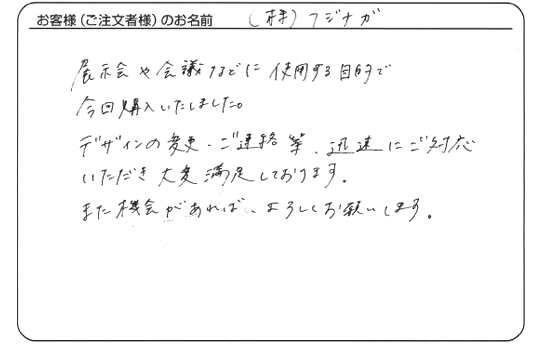 お客様(ご注文者様)のお名前 (株)フジナガ
展示会や会議などに使用する目的で
今回購入いたしました。
デザインの変更・ご連絡等、迅速にご対応
いただき大変満足しております。
また機会があれば、よろしくお願いします。